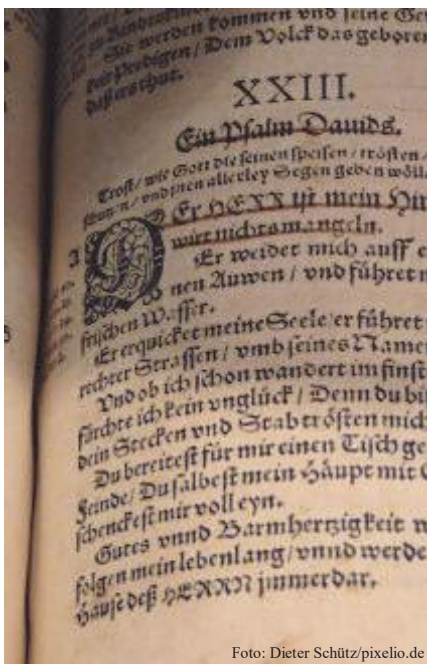 Sie werden kommen vnd seine Ge
keit Predigen / Dem Volck das geboren
daß ers thut.
XXIII.
Ein Psalm Dauids.
Trost / wie Gott die seinen speisen / trösten /
schützen / vnd jnen allerley Segen geben wöll
DEr HERR ist mein Hir
wirt nichts mangeln.
Er weidet mich auff e
nen Auwen / vnd führet
frischen Wasser.
Er erquicket meine Seele / er führet
rechter Strassen / vmb seines Name
Vnd ob ich schon wandert im finst
fürchte ich kein vnglück / Denn du bi
dein Stecken vnd Stab trösten mich
Du bereitest für mir einen Tisch ge
Feinde / Du salbest mein Häupt mit
schenckest mir voll eyn.
Gutes vnnd Barmhertzigkeit w
folgen mein lebenlang / vnnd werde
Hause deß HERRN jmmerdar.
Foto: Dieter Schütz/pixelio.de